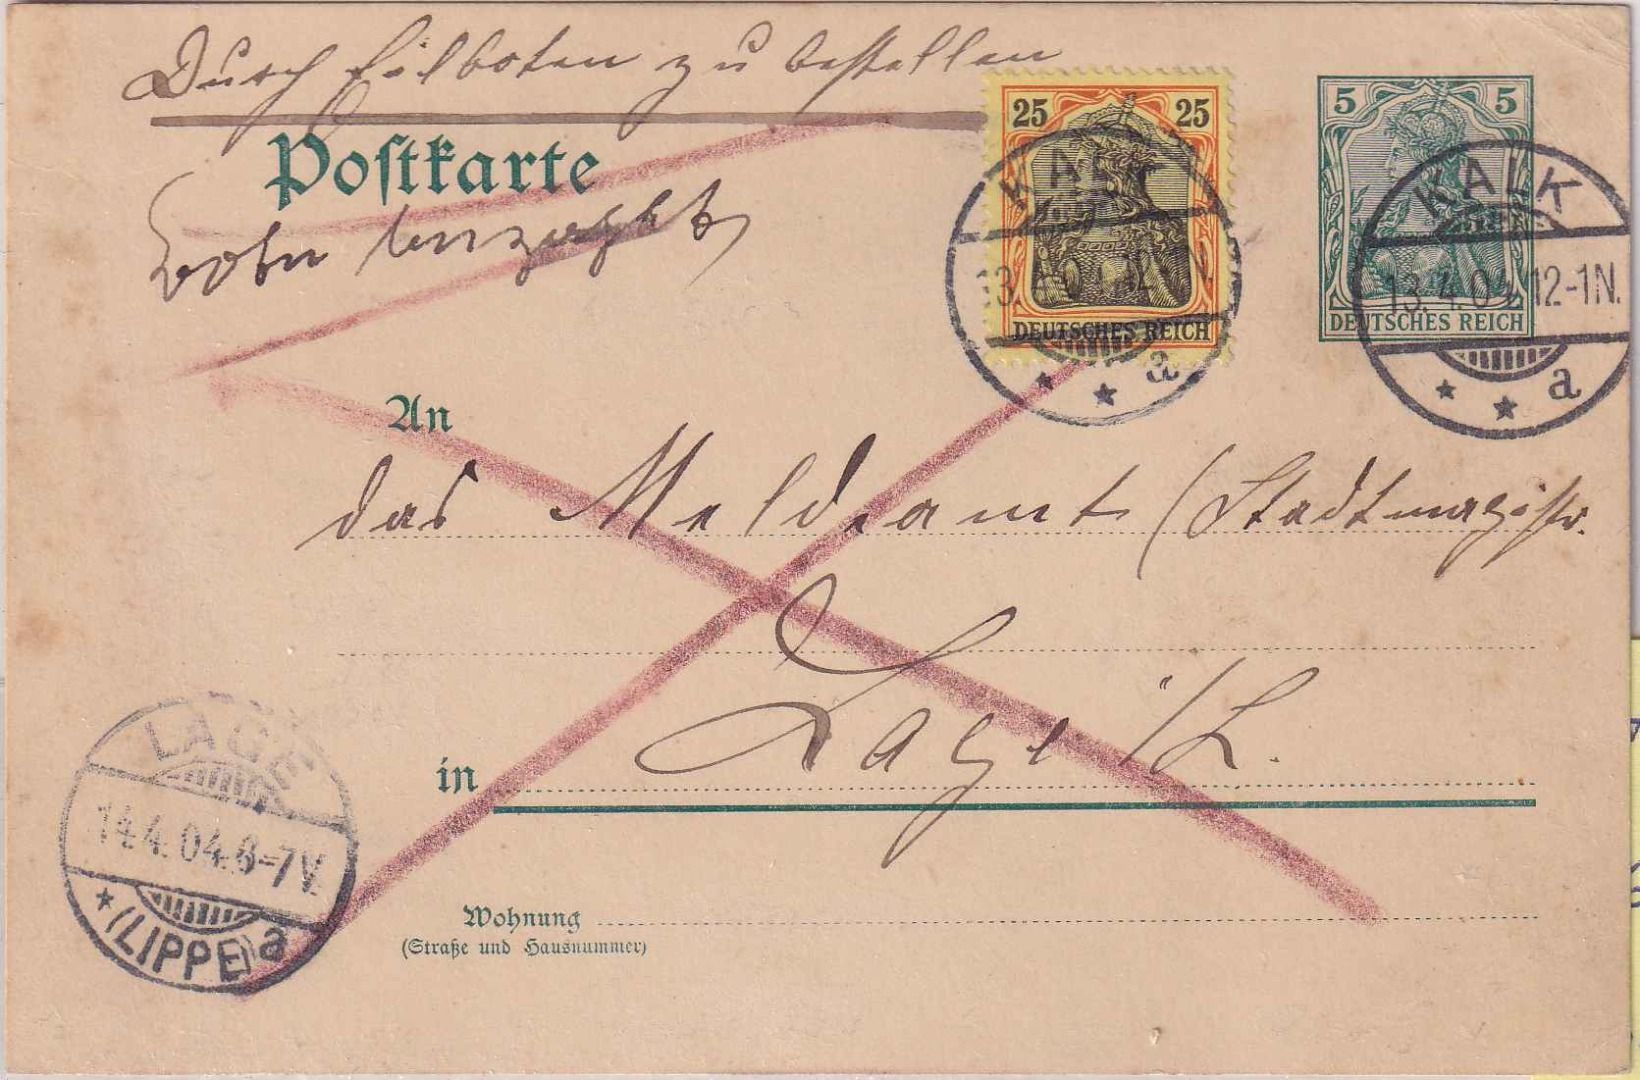 Durch Eilboten zu bestellen
Postkarte
Bote bezahlt
25 25
DEUTSCHES REICH
5 5
DEUTSCHES REICH
KALK
13.4.04 12-1N.
a
KALK
13.4.04 12-1N.
a
An
das Meldeamt (Stadtmagistr.
in Lage i/L.
LAGE
14.4.04. 6-7V.
(LIPPE) a
Wohnung
(Straße und Hausnummer)